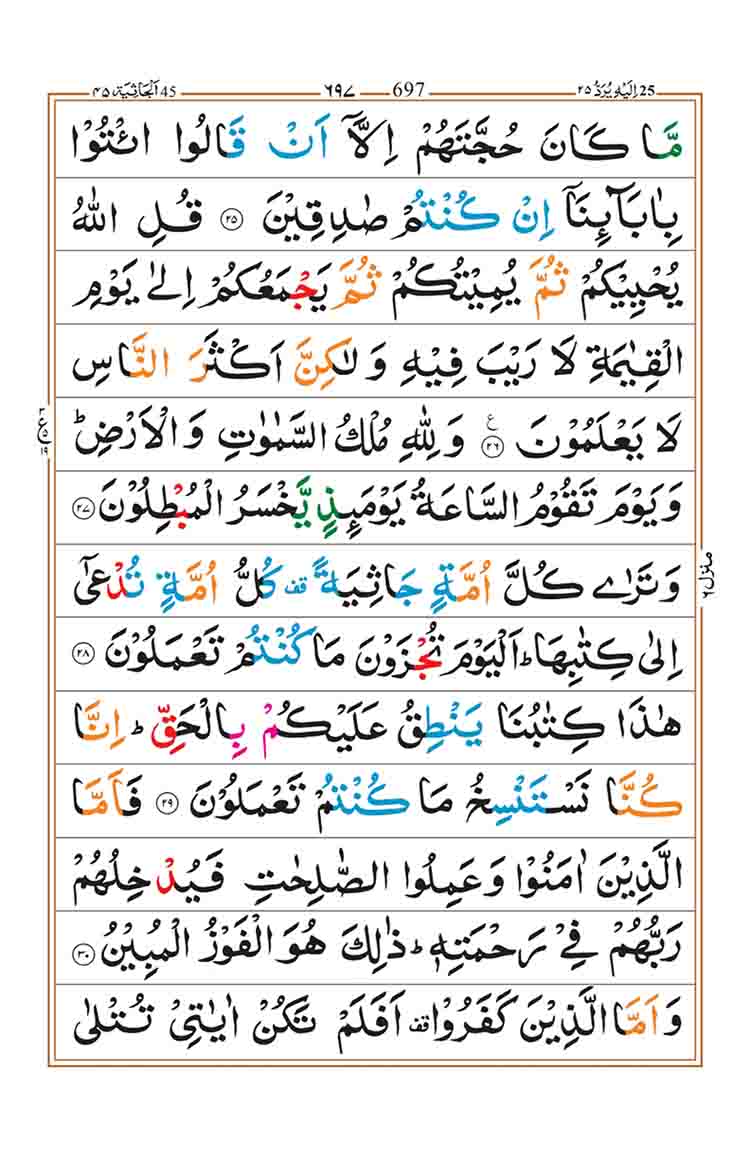 45 اَلْجَاثِيَة ٤٥ ٦٩٧ 697 ٢٥ اِلَيْهِ يُرَدُّ 25
مَّا كَانَ حُجَّتَهُمْ اِلَّاۤ اَنْ قَالُوا ائْتُوْا
بِاٰبَآىِٕنَاۤ اِنْ كُنْتُمْ صٰدِقِيْنَ ۝٢٥ قُلِ اللّٰهُ
يُحْيِيْكُمْ ثُمَّ يُمِيْتُكُمْ ثُمَّ يَجْمَعُكُمْ اِلٰى يَوْمِ
الْقِيٰمَةِ لَا رَيْبَ فِيْهِ وَلٰكِنَّ اَكْثَرَ النَّاسِ
لَا يَعْلَمُوْنَ ۝٢٦ ع وَلِلّٰهِ مُلْكُ السَّمٰوٰتِ وَالْاَرْضِ ؕ
ع ٦ ٥ ١٩
وَيَوْمَ تَقُوْمُ السَّاعَةُ يَوْمَىِٕذٍ يَّخْسَرُ الْمُبْطِلُوْنَ ۝٢٧
وَتَرٰى كُلَّ اُمَّةٍ جَاثِيَةً قف كُلُّ اُمَّةٍ تُدْعٰۤى
منزل ٦
اِلٰى كِتٰبِهَا ؕ اَلْيَوْمَ تُجْزَوْنَ مَا كُنْتُمْ تَعْمَلُوْنَ ۝٢٨
هٰذَا كِتٰبُنَا يَنْطِقُ عَلَيْكُمْ بِالْحَقِّ ؕ اِنَّا
كُنَّا نَسْتَنْسِخُ مَا كُنْتُمْ تَعْمَلُوْنَ ۝٢٩ فَاَمَّا
الَّذِيْنَ اٰمَنُوْا وَعَمِلُوا الصّٰلِحٰتِ فَيُدْخِلُهُمْ
رَبُّهُمْ فِيْ رَحْمَتِهٖ ؕ ذٰلِكَ هُوَ الْفَوْزُ الْمُبِيْنُ ۝٣٠
وَاَمَّا الَّذِيْنَ كَفَرُوْا قف اَفَلَمْ تَكُنْ اٰيٰتِيْ تُتْلٰى